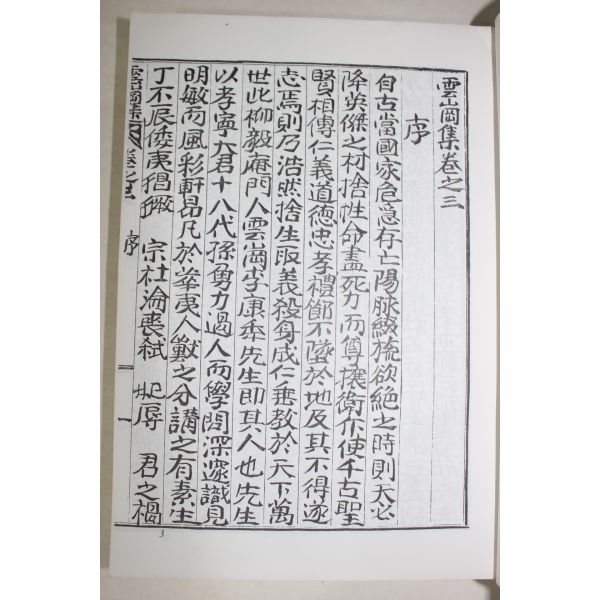 雲岡集卷之三
序
自古當國家危急存亡陽脉綴旒欲絶之時則天必
降英傑之材捨性命盡死力而尊攘衛作使千古聖
賢相傳仁義道德忠孝禮節不墜於地及其不得遂
志焉則乃浩然捨生取義殺身成仁垂教於天下萬
世此柳毅庵門人雲岡李康秊先生即其人也先生
以孝寧大君十八代孫勇力過人而學問深邃識見
明敏而風彩軒昂凡於華夷人獸之分講之有素生
丁不辰倭夷猖獗 宗社淪喪弑 妃辱 君之禍
雲岡集 卷之三 序 一
3